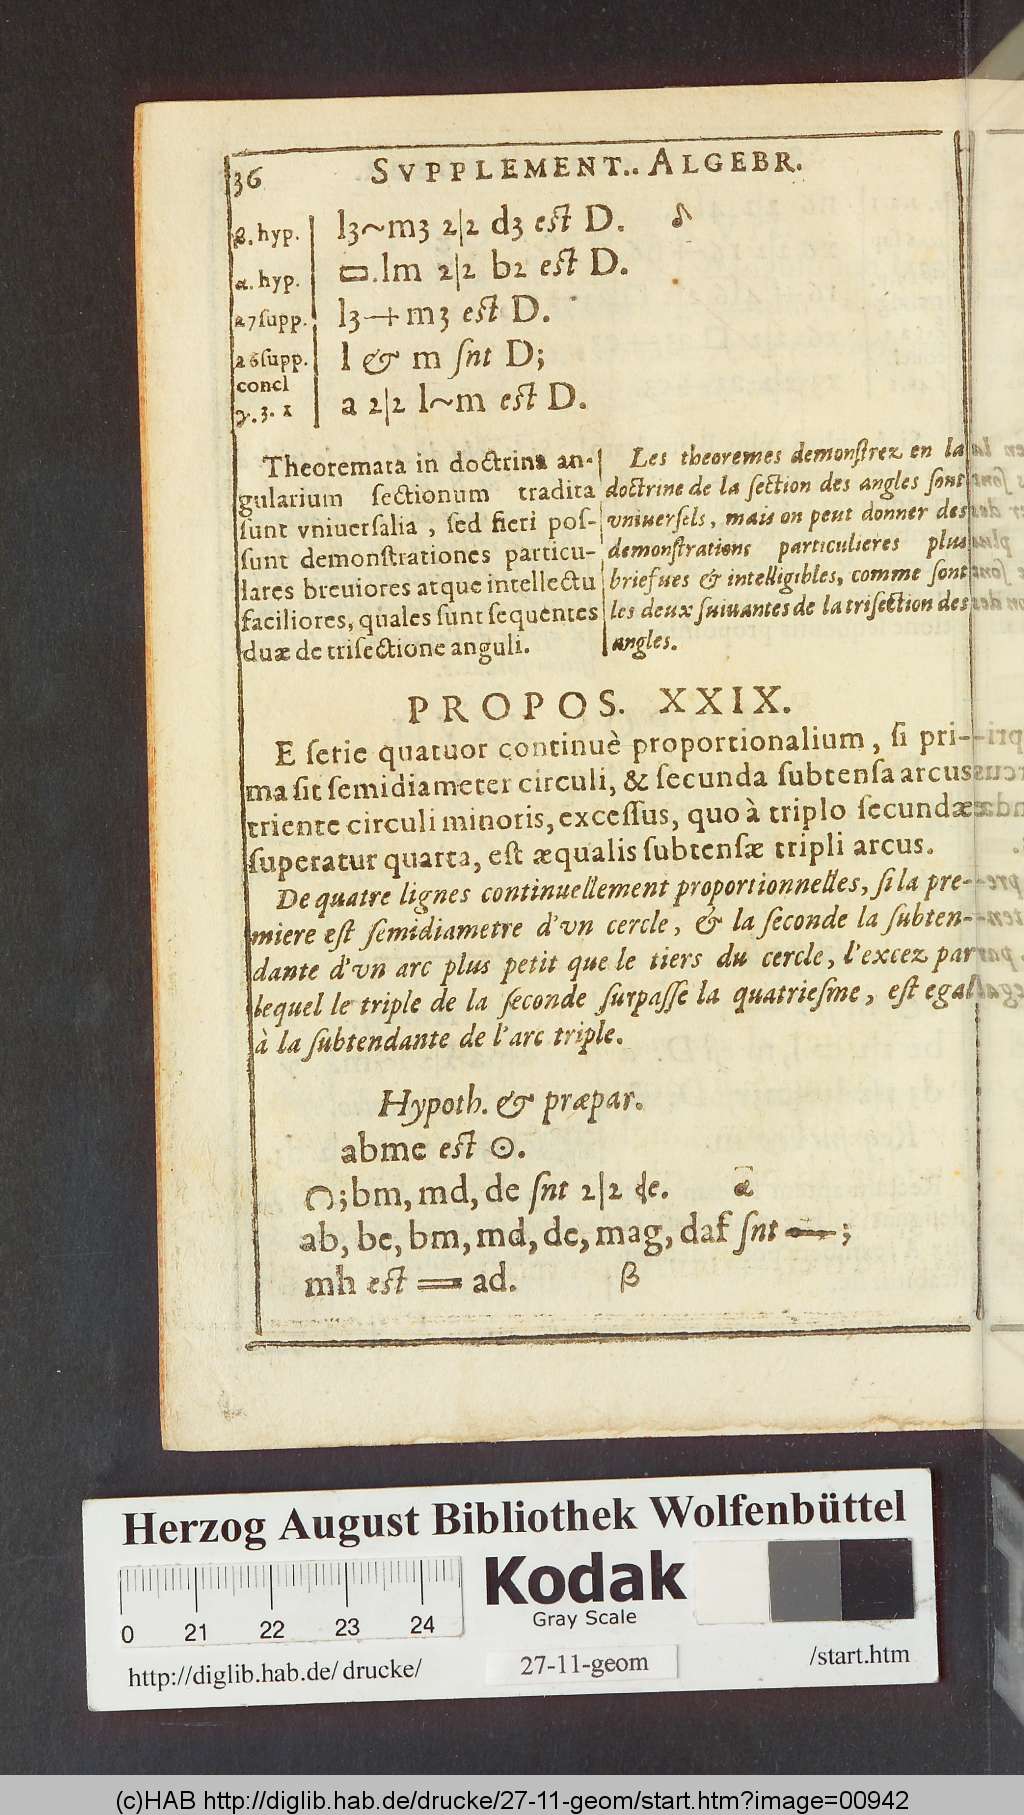 36 SVPPLEMENT.. ALGEBR.
β. hyp. | l3~m3 2|2 d3 est D. δ
α. hyp. | ▭.lm 2|2 b2 est D.
27 supp. | l3+m3 est D.
26 supp. | l & m snt D;
concl
γ. 3. 1 | a 2|2 l~m est D.
Theoremata in doctrina an-
gularium sectionum tradita
sunt vniuersalia, sed fieri pos-
sunt demonstrationes particu-
lares breuiores atque intellectu
faciliores, quales sunt sequentes
duæ de trisectione anguli.
Les theoremes demonstrez en la
doctrine de la section des angles sont
vniuersels, mais on peut donner des
demonstrations particulieres plus
briefues & intelligibles, comme sont
les deux suiuantes de la trisection des
angles.
PROPOS. XXIX.
E serie quatuor continuè proportionalium, si pri-
ma sit semidiameter circuli, & secunda subtensa arcus
triente circuli minoris, excessus, quo à triplo secundæ
superatur quarta, est æqualis subtensæ tripli arcus.
De quatre lignes continuellement proportionnelles, si la pre-
miere est semidiametre d'vn cercle, & la seconde la subten-
dante d'vn arc plus petit que le tiers du cercle, l'excez par
lequel le triple de la seconde surpasse la quatriesme, est egal
à la subtendante de l'arc triple.
Hypoth. & præpar.
abme est ☉.
◠; bm, md, de snt 2|2 de. α
ab, be, bm, md, de, mag, daf snt —;
mh est = ad. β
Herzog August Bibliothek Wolfenbüttel
Kodak
Gray Scale
0 21 22 23 24
http://diglib.hab.de/drucke/ 27-11-geom /start.htm
(c)HAB http://diglib.hab.de/drucke/27-11-geom/start.htm?image=00942